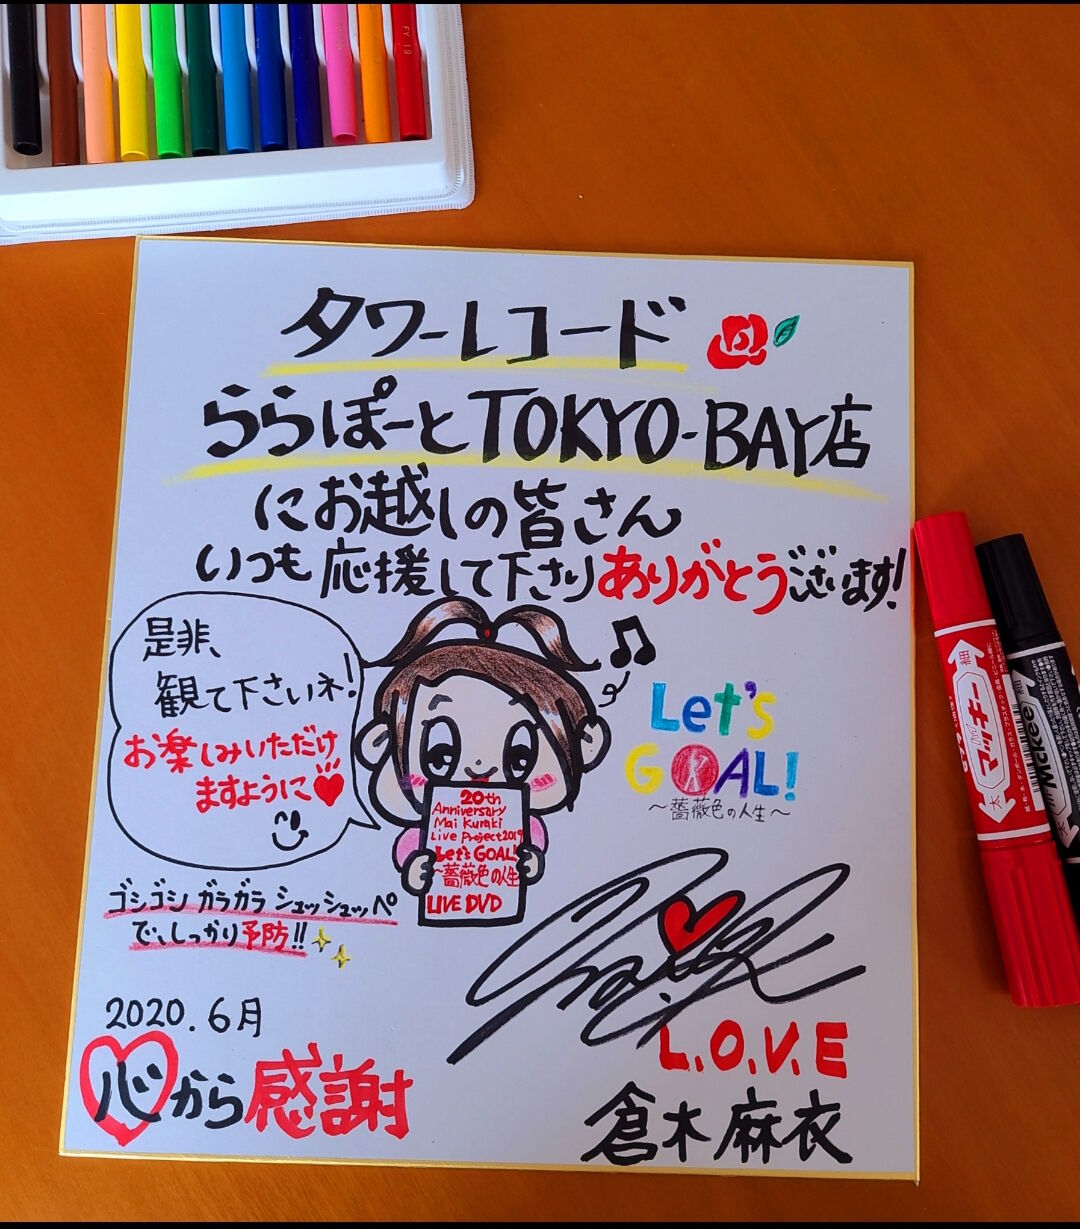 FY 19
タワーレコード
ららぽーとTOKYO-BAY店
にお越しの皆さん
いつも応援して下さりありがとうございます!
是非、
観て下さいネ!
お楽しみいただけ
ますように
Let's
GOAL!
〜薔薇色の人生〜
20th
Anniversary
Mai Kuraki
Live Project2019
Let's GOAL!
〜薔薇色の人生
LIVE DVD
ゴシゴシ ガラガラ シュッシュッペ
で、しっかり予防!!
2020.6月
心から感謝
L.O.V.E
倉木麻衣
マッキー
細
太
Mckee